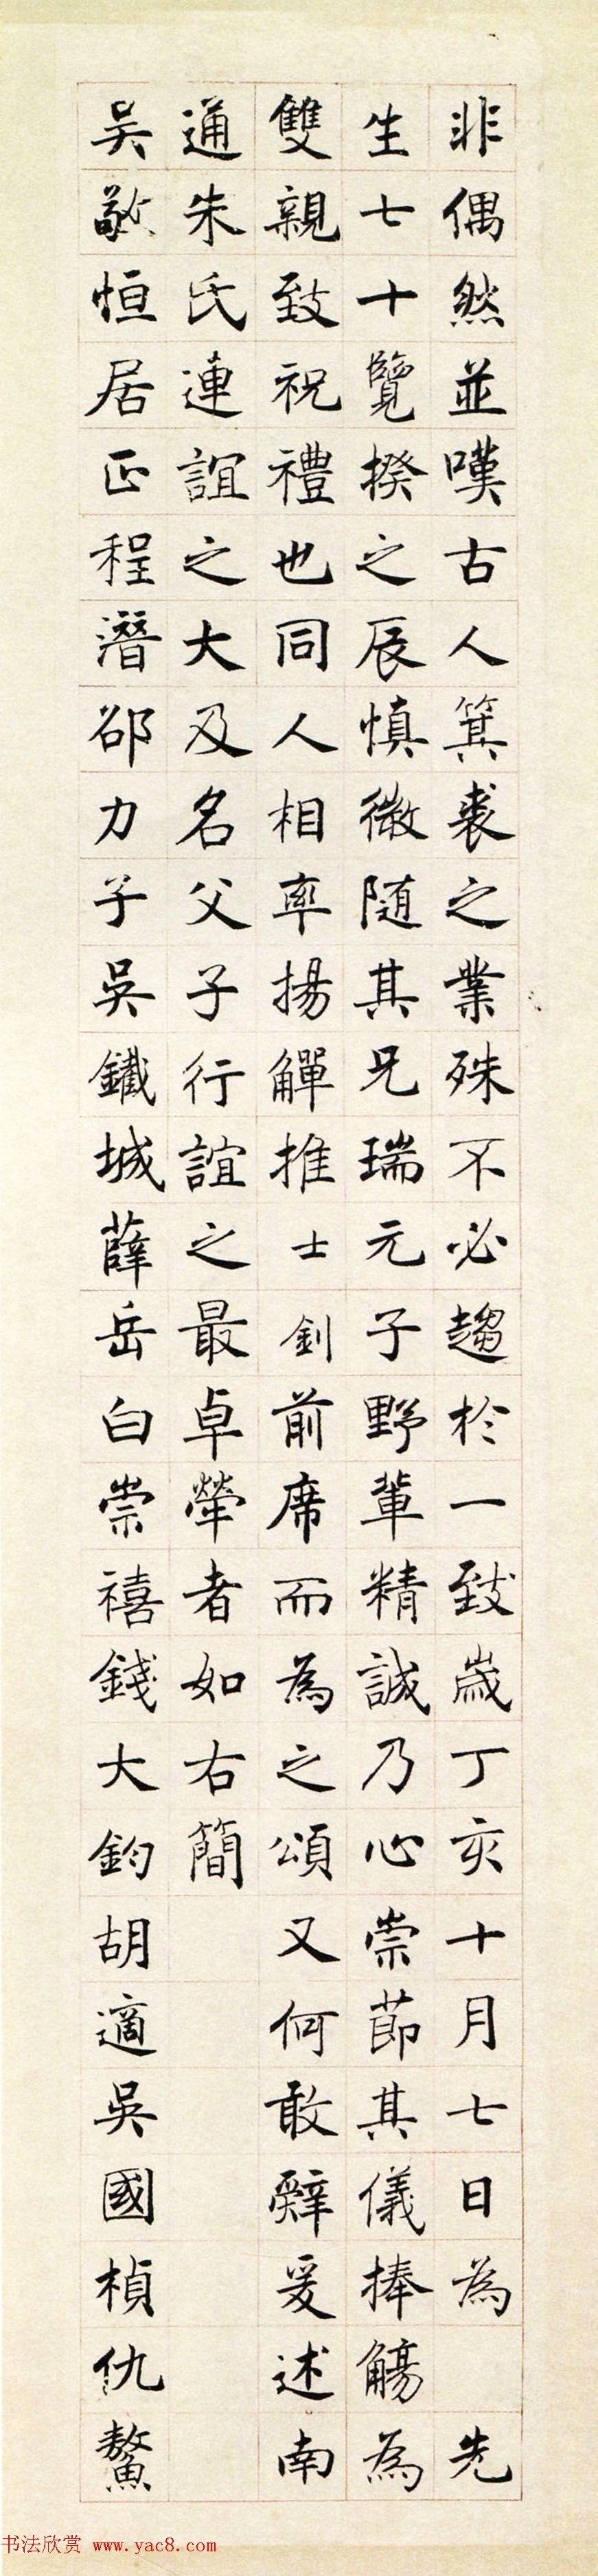 非偶然並嘆古人箕裘之業殊不必趨於一致歲丁亥十月七日為先
生七十覽揆之辰慎微隨其兄瑞元子野輩精誠乃心崇節其儀捧觴為
雙親致祝禮也同人相率揚觶推士釗前席而為之頌又何敢辭爰述南
通朱氏連誼之大及名父子行誼之最卓犖者如右簡
吳敬恒居正程潛邵力子吳鐵城薛岳白崇禧錢大鈞胡適吳國楨仇鰲
书法欣赏 www.yac8.com